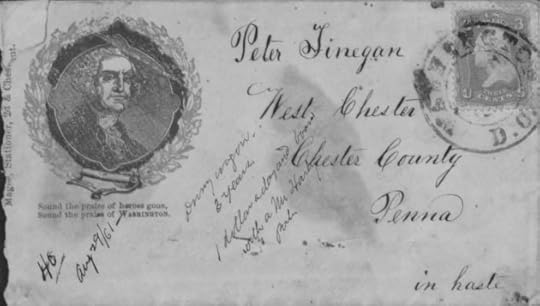 Magee, Stationer, 316 Chestnut.
Sound the praise of heroes gone,
Sound the praise of WASHINGTON.
Peter Finegan
West Chester
Chester County
Penna
in haste
WASHINGTON
D.C.
3 3
CENTS
40
Aug 29/61
3 years
1 dollar a day and
with a Mr